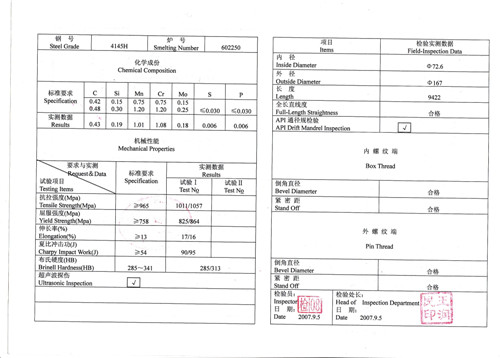 钢 号
Steel Grade
4145H
炉 号
Smelting Number
602250
化学成份
Chemical Composition
标准要求
Specification
C Si Mn Cr Mo S P
0.42 0.15 0.75 0.75 0.15
0.48 0.30 1.20 1.20 0.25 ≤0.030 ≤0.030
实测数据
Results
0.43 0.19 1.01 1.08 0.18 0.006 0.006
机械性能
Mechanical Properties
要求与实测
Request & Data
试验项目
Testing Items
标准要求
Specification
实测数据
Results
试验 I
Test No
试验 II
Test No
抗拉强度(Mpa)
Tensile Strength(Mpa) ≥965 1011/1057
屈服强度(Mpa)
Yield Strength(Mpa) ≥758 825/864
伸长率(%)
Elongation(%) ≥13 17/16
夏比冲击功(J)
Charpy Impact Work(J) ≥54 90/95
布氏硬度(HB)
Brinell Hardness(HB) 285～341 285/313
超声波探伤
Ultrasonic Inspection √
项目
Items
检验实测数据
Field-Inspection Data
内 径
Inside Diameter Φ72.6
外 径
Outside Diameter Φ167
长 度
Length 9422
全长直线度
Full-Length Straightness 合格
API 通径规检验
API Drift Mandrel Inspection √
内 螺 纹 端
Box Thread
倒角直径
Bevel Diameter 合格
紧 密 距
Stand Off 合格
外 螺 纹 端
Pin Thread
倒角直径
Bevel Diameter 合格
紧 密 距
Stand Off 合格
检验员：
Inspector
日 期：
Date 2007.9.5
检验处长：
Head of Inspection Department
日 期：
Date 2007.9.5